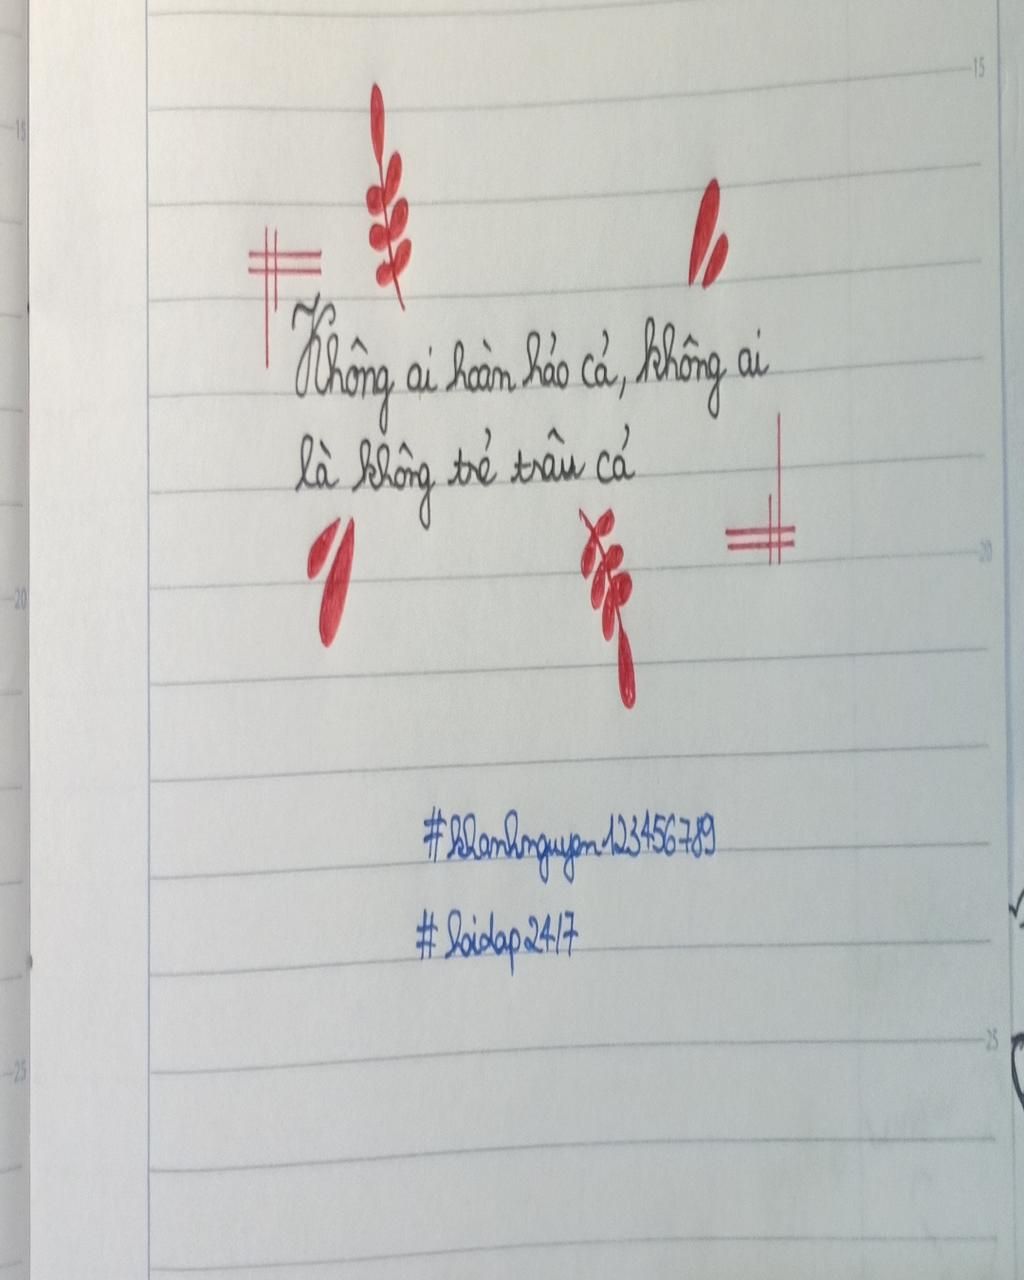 15
15
Không ai hoàn hảo cả, không ai
là không trẻ trâu cả
20
20
#khanhnguyen123456789
#hoidap24/7
25
25